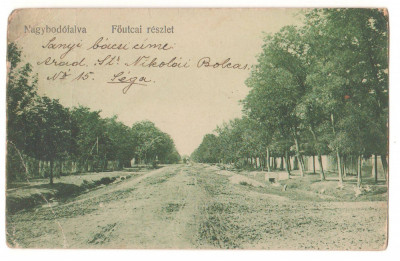 Nagybodófalva Főutcai részlet
Sanyi bácsi címe
Arad. St. Nikolái Bolcas
No 15. Séga.